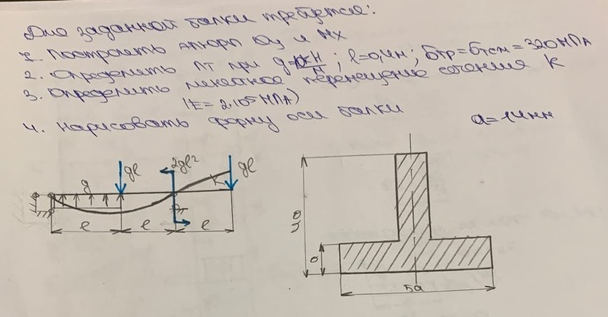 Для заданной балки требуется:
1. Построить эпюры Qy и Mx
2. Определить nт при q=10 кН/м; l=0,4м; σтр=σтсж=320 МПа
3. Определить линейное перемещение сечения K
(E=2·10⁵ МПа)
4. Нарисовать форму оси балки
a=14мм
ql 2ql² ql
q K
l l l
a
5a